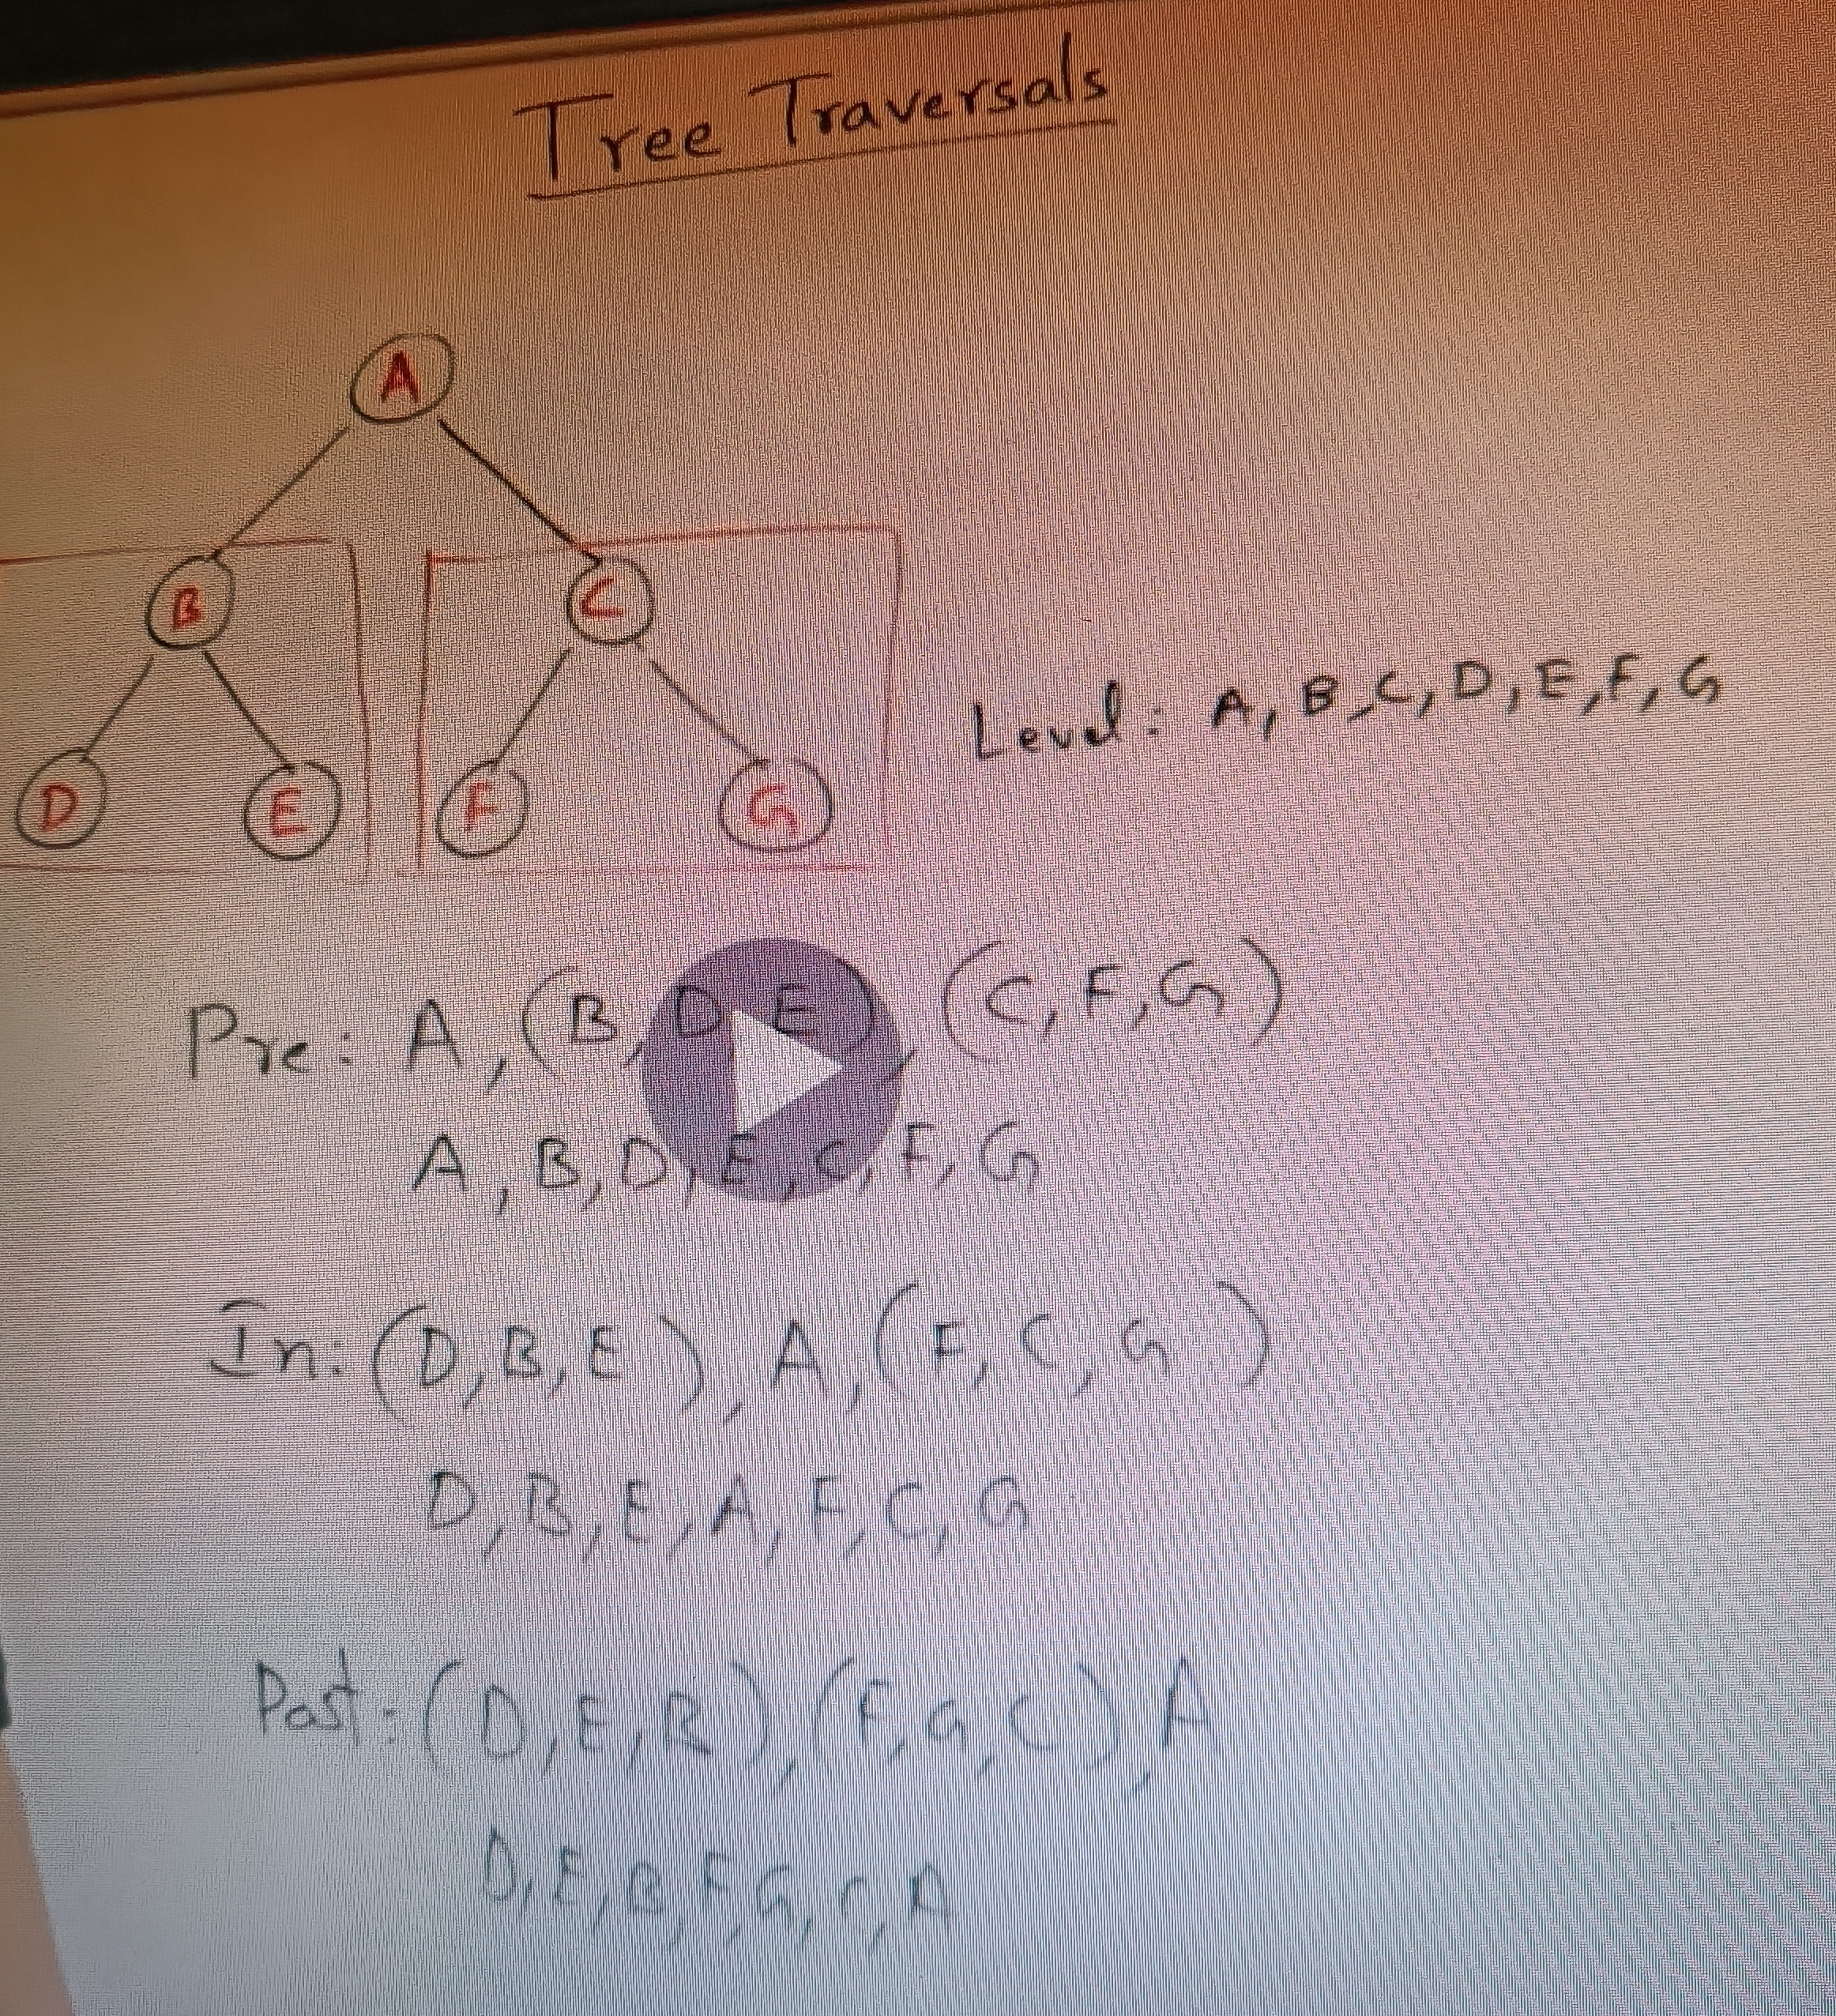 Tree Traversals
A
B
C
D
E
F
G
Level: A, B, C, D, E, F, G
Pre: A, (B, D, E), (C, F, G)
A, B, D, E, C, F, G
In: (D, B, E), A, (F, C, G)
D, B, E, A, F, C, G
Post: (D, E, B), (F, G, C), A
D, E, B, F, G, C, A